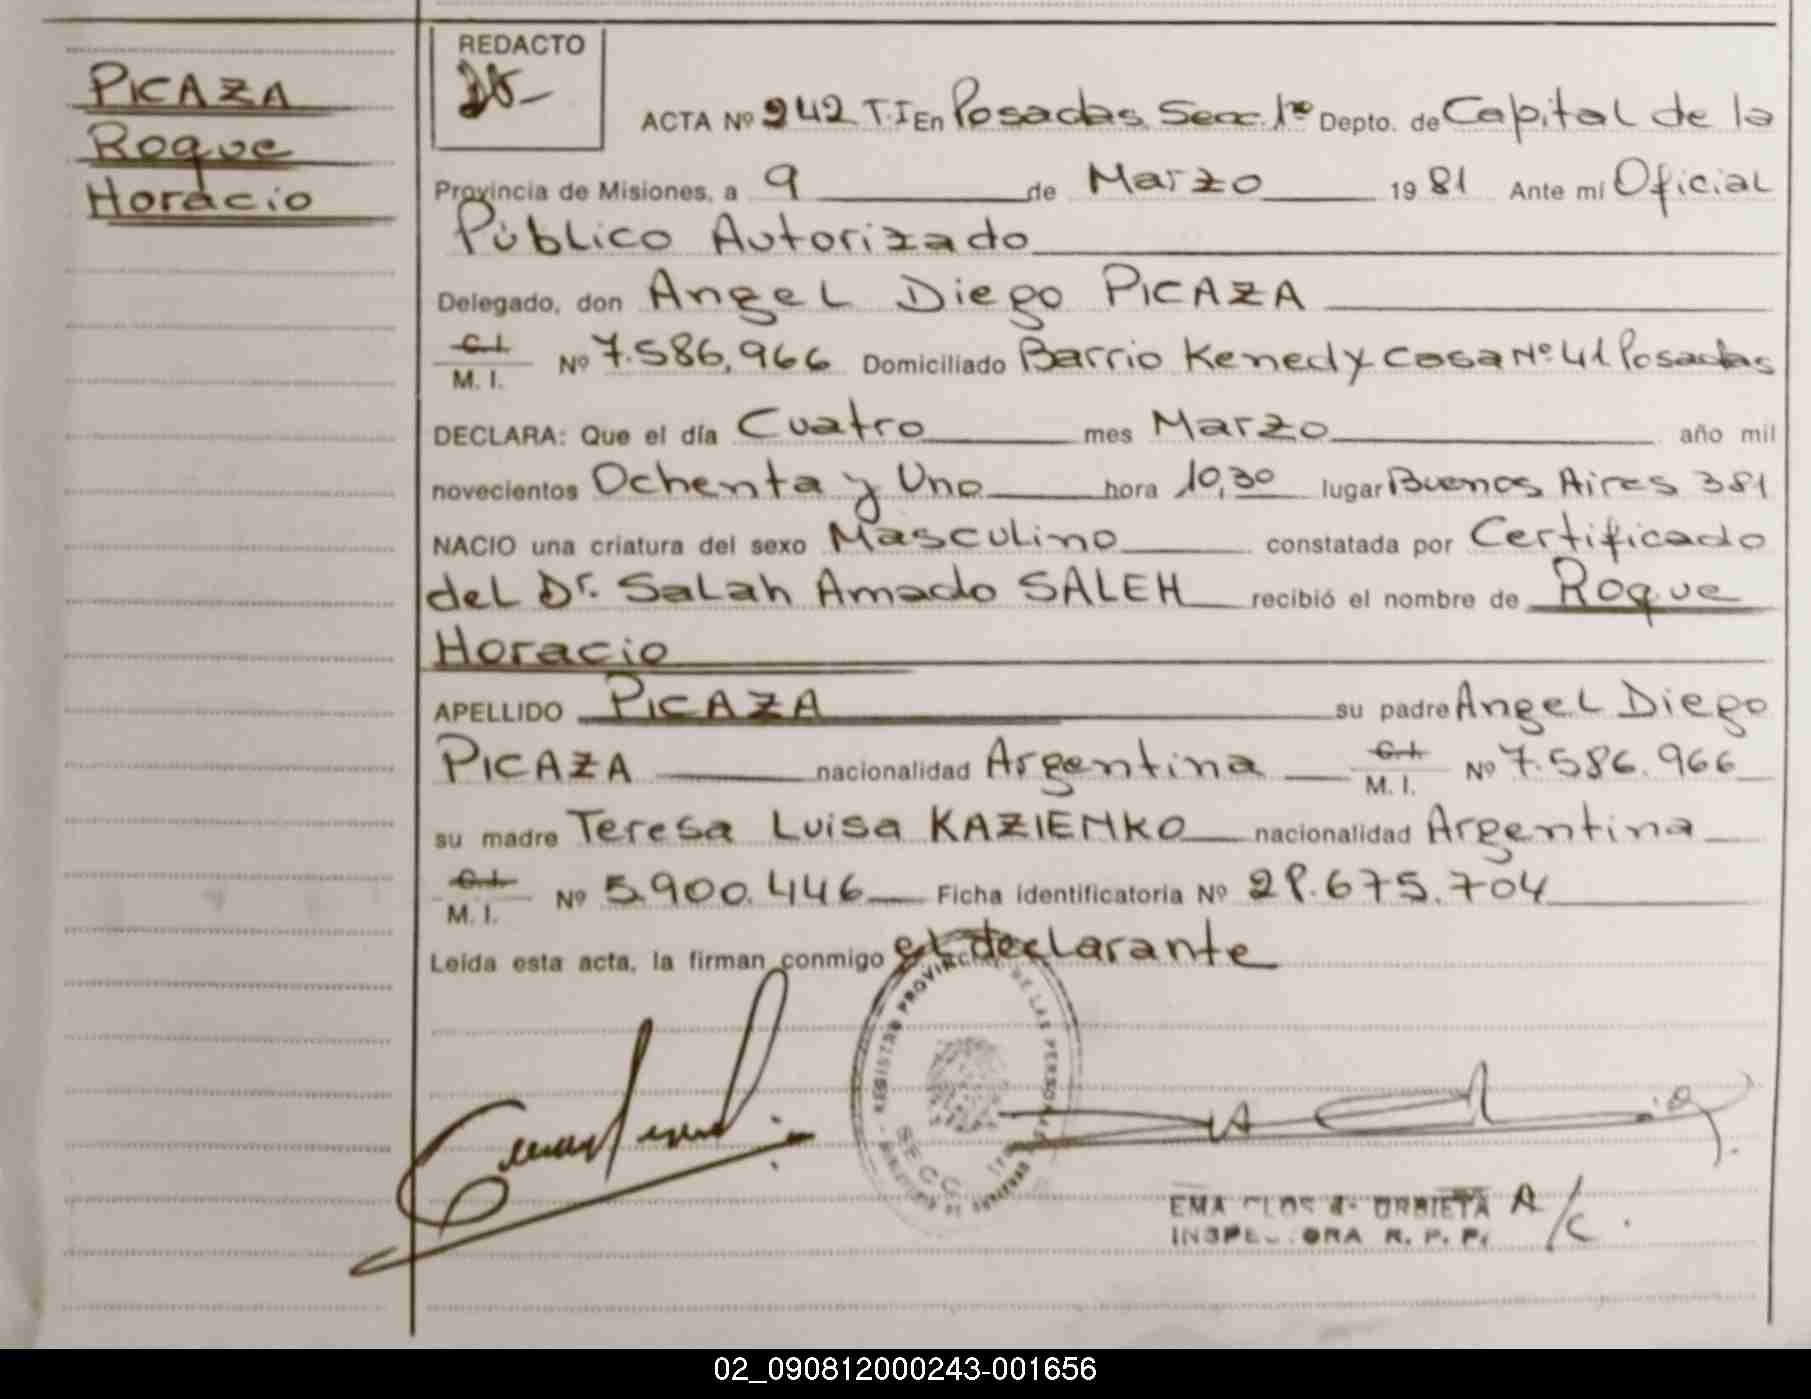 PICAZA
Roque
Horacio
REDACTO
ACTA Nº 242 T.I En Posadas Secc. 1ª Depto. de Capital de la
Provincia de Misiones, a 9 de Marzo 1981 Ante mí Oficial
Público Autorizado
Delegado, don Angel Diego PICAZA
C.I. / M. I. Nº 7.586,966 Domiciliado Barrio Kenedy Casa Nº 41 Posadas
DECLARA: Que el día Cuatro mes Marzo año mil
novecientos Ochenta y Uno hora 10,30 lugar Buenos Aires 381
NACIO una criatura del sexo Masculino constatada por Certificado
del Dr. Salah Amado SALEH recibió el nombre de Roque
Horacio
APELLIDO PICAZA su padre Angel Diego
PICAZA nacionalidad Argentina C.I. / M. I. Nº 7.586.966
su madre Teresa Luisa KAZIEMKO nacionalidad Argentina
C.I. / M. I. Nº 5.900.446 Ficha identificatoria Nº 28.675.704
Leída esta acta, la firman conmigo el declarante
REGISTRO PROVINCIAL DE LAS PERSONAS
SECC.
EMA CLOS de URBIETA A/C.
INSPECTORA R. P. P.
02_090812000243-001656